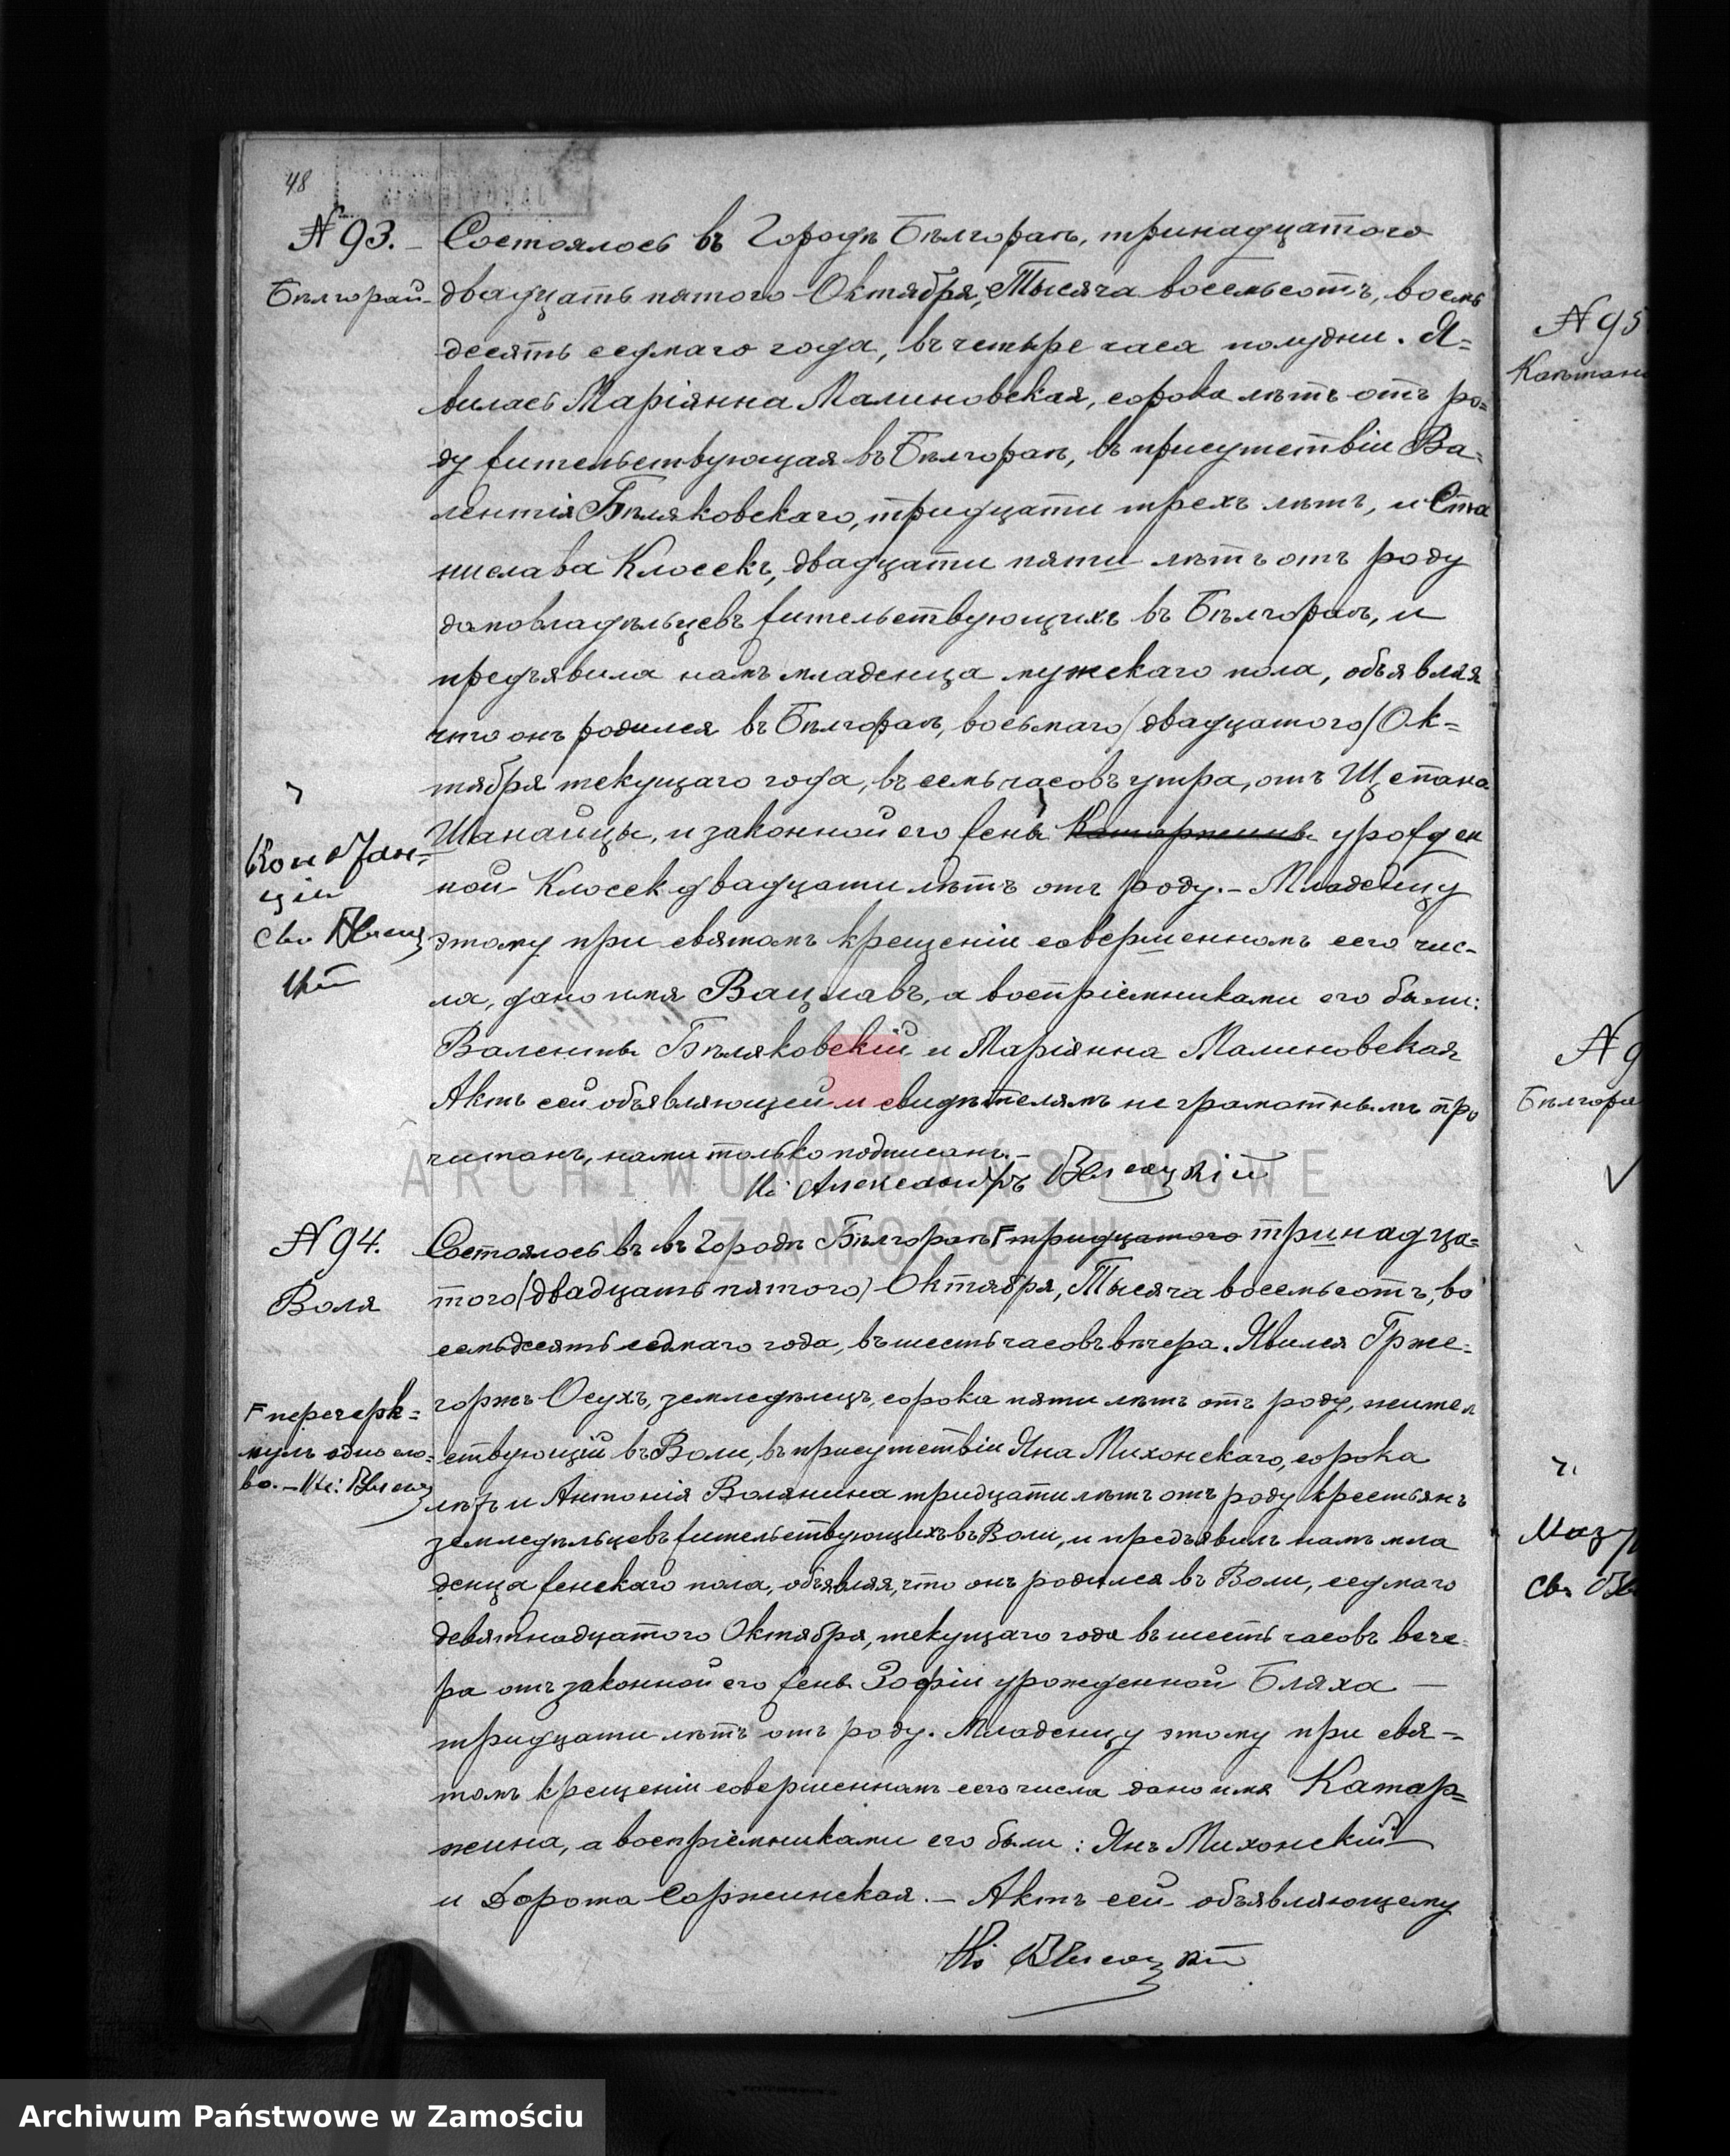 48
№ 93.
Бѣлгорай
Состоялось въ Городѣ Бѣлгораѣ, тринадцатого
двадцать пятого Октября, Тысяча восемьсотъ, восемь
десятъ седмаго года, въ четыре часа полудни. Я=
вилась Маріянна Малиновская, сорока лѣтъ отъ ро=
ду жительствующая въ Бѣлгораѣ, въ присутствіи Ва=
лентія Бѣляковскаго, тридцати трехъ лѣтъ, и Ста
нислава Клосекъ, двадцати пяти лѣтъ отъ роду
домовладѣльцевъ жительствующихъ въ Бѣлгораѣ, и
предъявила намъ младенца мужескаго пола, объявляя
что онъ родился въ Бѣлгораѣ, восьмаго (двадцатого) Ок=
тября текущаго года, въ семь часовъ утра, отъ Щепана
Шанайцы, и законной его жены Катаржины урожден
ной Клосек двадцати лѣтъ отъ роду. – Младенцу
этому при святомъ крещеніи совершенномъ сего чис-
ла, дано имя Вацлавъ, а воспріемниками его были:
Валенты Бѣляковскій и Маріянна Малиновская
Актъ сей объявляющей и свидѣтелямъ неграмотнымъ про
читанъ, нами только подписанъ. –
Кс. Александръ
Конста́н=
ціи
№ 94.
Воля
Состоялось въ въ Городѣ Бѣлгораѣ тридцатого тринадца=
того (двадцать пятого) Октября, Тысяча восемьсотъ, во
семьдесятъ седмаго года, въ шесть часовъ вечера. Явился Грже=
горжъ Осухъ, земледѣлецъ, сорока пяти лѣтъ отъ роду, жител
ствующій въ Воли, въ присутствіи Яна Михонскаго, сорока
лѣтъ и Антонія Волянина тридцати лѣтъ отъ роду крестьянъ
земледѣльцевъ жительствующихъ въ Воли, и предъявилъ намъ мла
денца женскаго пола, объявляя, что онъ родился въ Воли, седмаго
девятнадцатого Октября, текущаго года въ шесть часовъ вече=
ра отъ законной его жены Зофіи урожденной Бляха –
тридцати лѣтъ отъ роду. Младенцу этому при свя-
томъ крещеніи совершенномъ сего числа дано имя Катар=
жина, а воспріемниками его были: Янъ Михонскій
и Дорота Саржинская. – Актъ сей объявляющему
перечерк=
нулъ одно сло=
во. – Кс:
№ 95
№ 9
ARCHIWUM PAŃSTWOWE
W ZAMOŚCIU
Archiwum Państwowe w Zamościu